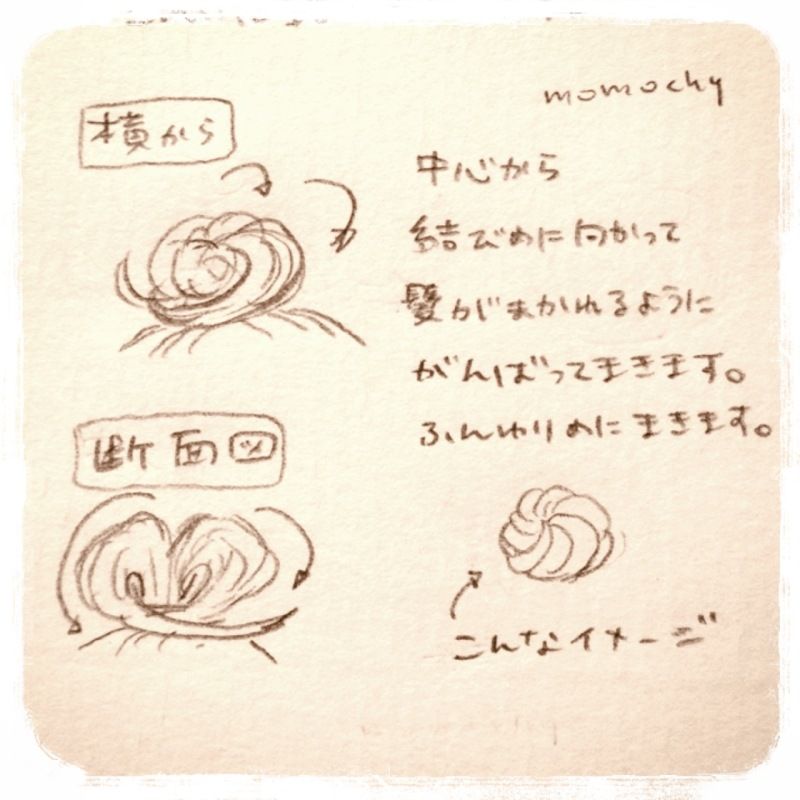 momochy
横から
中心から
結びめに向かって
髪がまかれるように
がんばってまきます。
ふんわりめにまきます。
断面図
こんなイメージ